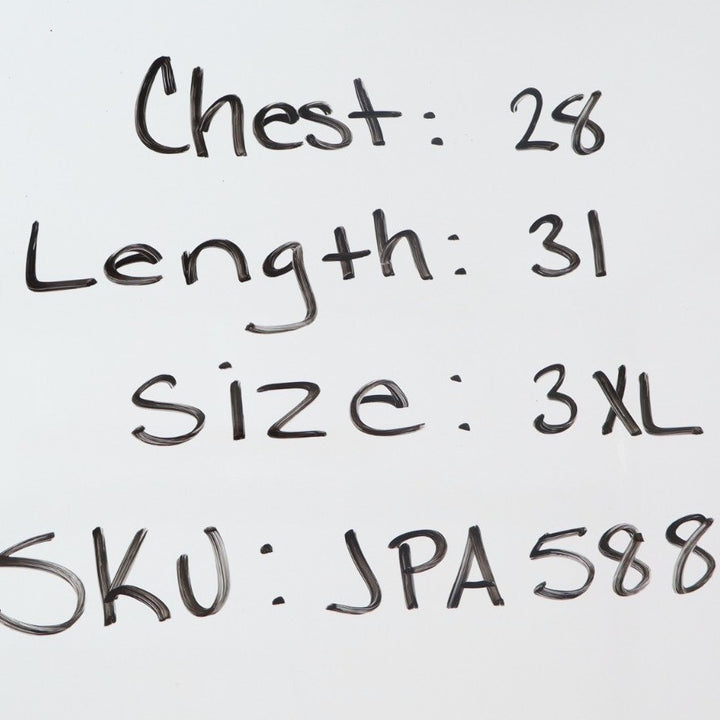 Chest: 28
Length: 31
Size: 3XL
SKU: JPA588